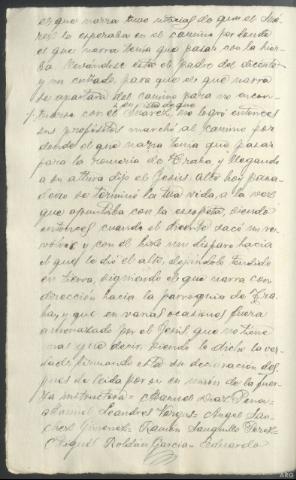 el que narra tuvo noticias de que el Suá-
rez lo esperaba en el camino por donde
el que narra tenía que pasar con la
Hernández esta el padre del
y un cuñado, para que el que narra
se apartara del camino para no encon-
trarse con el Suarez, no logró entonces
en vista de que
sus propósitos marchó al camino por
donde el que narra tenía que pasar
para la de y llegando
a su altura dijo el Jesús alto hoy
se terminó la tua vida, a la vez
que apuntaba con la escopeta, siendo
entonces cuando el dicente sacó un re-
volver y con el hizo un disparo hacia
el que le dió el alto, dejándole tendido
en tierra, siguiendo el que narra con
dirección hacia la parroquia de
y que en varias ocasiones fuera
amenazado por el Jesús que no tiene
mas que decir, siendo lo dicho la ver-
dad, firmando esta su declaracion des-
pues de leida por si en union de la fuer-
za instructora = Manuel Diaz Pena =
Manuel Leandro Vargas = Angel San-
chez Gimenez = Ramon Sanguillo Perez =
Miguel Roldán Garcia =
ARG